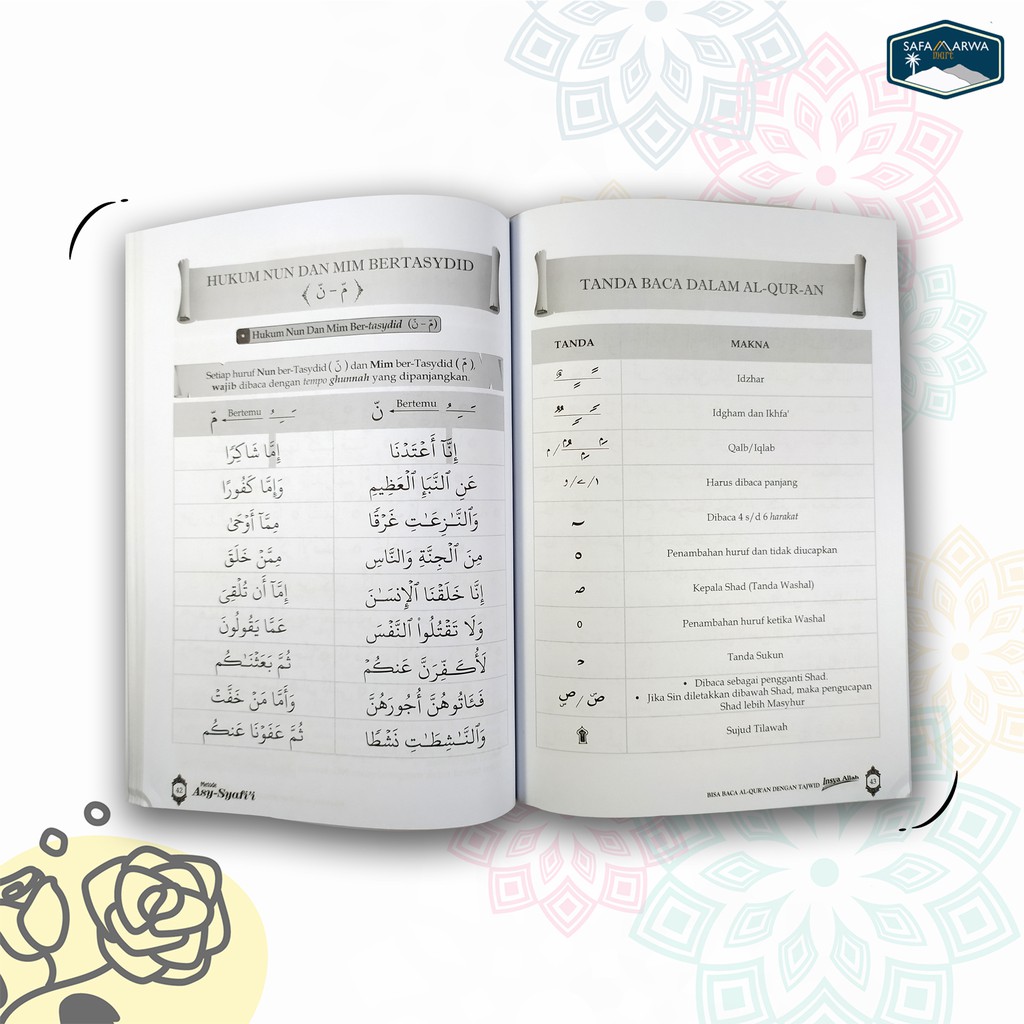 SAFA MARWA
mart
HUKUM NUN DAN MIM BERTASYDID
﴿ مّ – نّ ﴾
• Hukum Nun Dan Mim Ber-tasydid (مّ – نّ)
Setiap huruf Nun ber-Tasydid ( نّ ) dan Mim ber-Tasydid ( مّ ),
wajib dibaca dengan tempo ghunnah yang dipanjangkan.
نّ Bertemu
مّ Bertemu
إِنَّآ أَعْتَدْنَا
إِمَّا شَاكِرًا
عَنِ ٱلنَّبَإِ ٱلْعَظِيمِ
وَإِمَّا كَفُورًا
وَٱلنَّـٰزِعَـٰتِ غَرْقًا
مِمَّآ أَوْحَىٰ
مِنَ ٱلْجِنَّةِ وَالنَّاسِ
مِمَّنْ خَلَقَ
إِنَّا خَلَقْنَا ٱلْإِنسَـٰنَ
إِمَّآ أَن تُلْقِىَ
وَلَا تَقْتُلُوا۟ ٱلنَّفْسَ
عَمَّا يَقُولُونَ
لَأُكَفِّرَنَّ عَنكُمْ
ثُمَّ بَعَثْنَـٰكُم
فَـَٔاتُوهُنَّ أُجُورَهُنَّ
وَأَمَّا مَنْ خَفَّتْ
وَٱلنَّـٰشِطَـٰتِ نَشْطًا
ثُمَّ عَفَوْنَا عَنكُم
42
Metode
Asy-Syafi'i
TANDA BACA DALAM AL-QUR-AN
TANDA MAKNA
Idzhar
Idgham dan Ikhfa'
Qalb/Iqlab
ا / ے / و Harus dibaca panjang
Dibaca 4 s/d 6 harakat
Penambahan huruf dan tidak diucapkan
Kepala Shad (Tanda Washal)
Penambahan huruf ketika Washal
Tanda Sukun
• Dibaca sebagai pengganti Shad.
• Jika Sin diletakkan dibawah Shad, maka pengucapan
Shad lebih Masyhur
۩ Sujud Tilawah
BISA BACA AL-QUR'AN DENGAN TAJWID Insya Allah 43